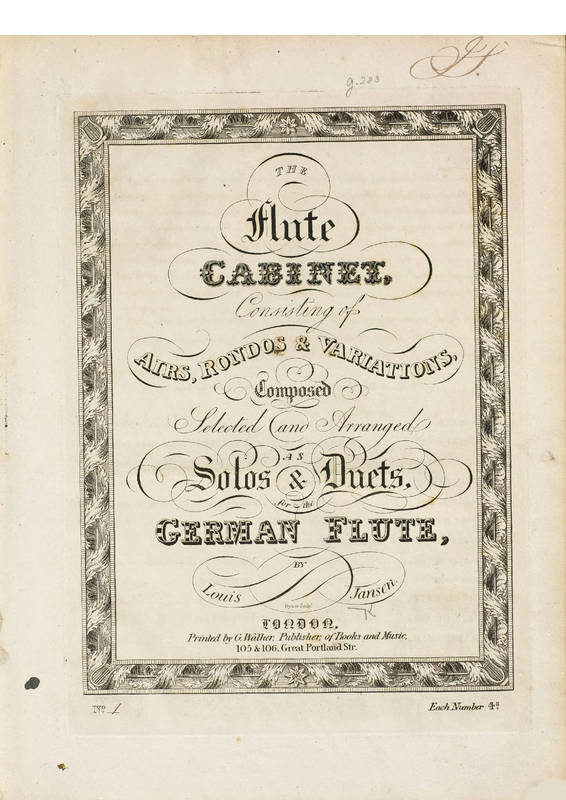 g.283
THE
Flute
CABINET,
Consisting of
AIRS, RONDOS & VARIATIONS,
Composed
Selected and Arranged
AS
Solos & Duets,
for the
GERMAN FLUTE,
BY
Louis Jansen.
LONDON,
Printed by G. Walker, Publisher, of Books and Music,
105 & 106, Great Portland Str.
No. 1
Each Number 4s